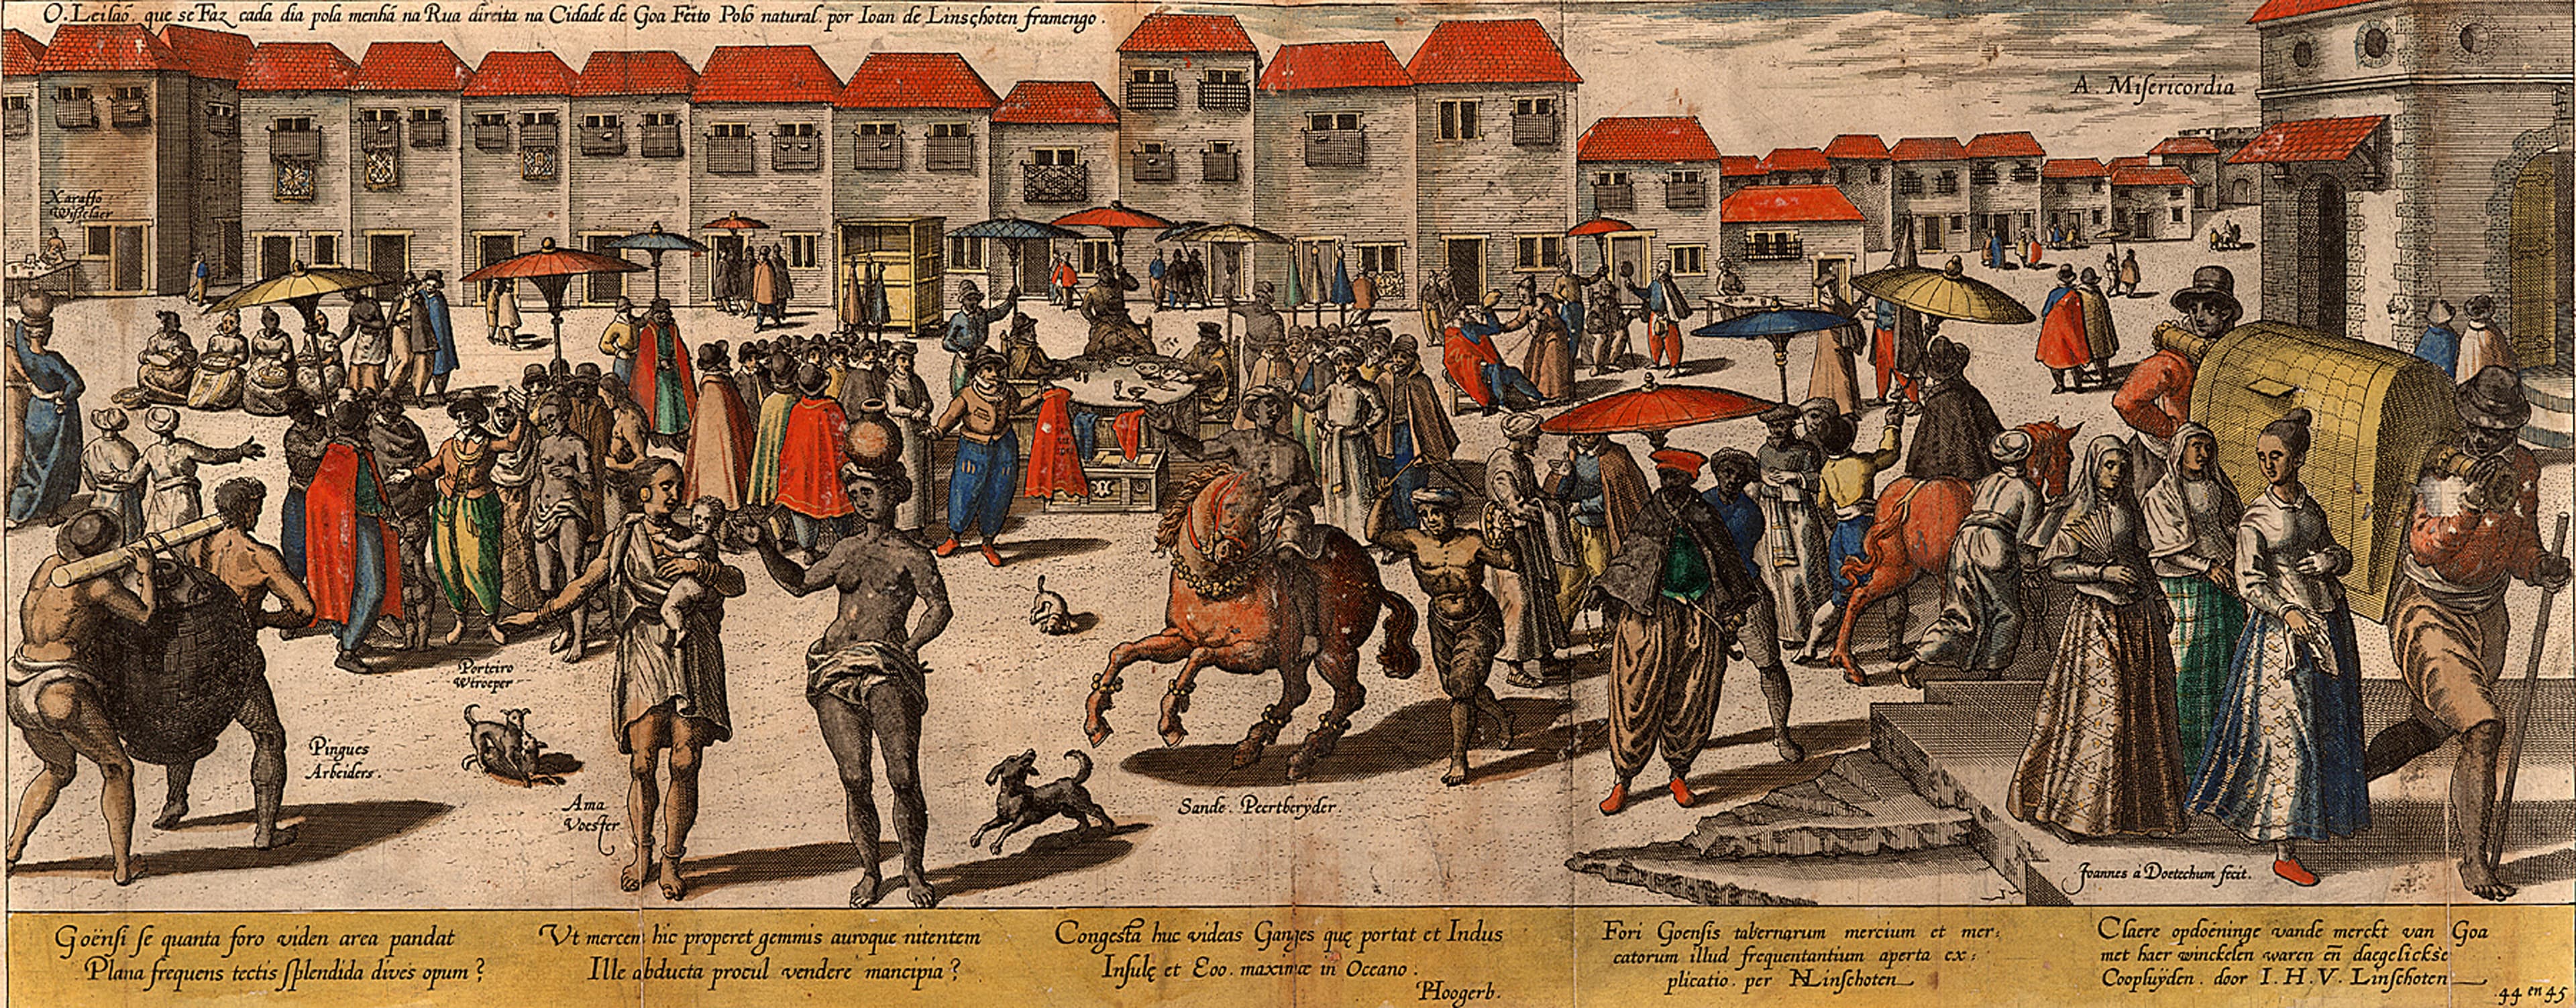 O. Leilaõ, que se Faz cada dia pola menhã na Rua direita na Cidade de Goa Feito Polo natural por Ioan de Linschoten framengo.
A. Misericordia
Xaraffo
Wisselaer
Porteiro
Wtroeper
Pingues
Arbeiders.
Ama
Voester
Sande Peertberyder.
Joannes à Doetechum fecit.
Goënsi se quanta foro viden area pandat
Plana frequens tectis splendida dives opum?
Vt mercem hic properet gemmis auroque nitentem
Ille abducta procul vendere mancipia?
Congesta huc videas Ganges quę portat et Indus
Insulę et Eoo maximæ in Oceano.
Hoogerb.
Fori Goensis tabernarum mercium et mer:
catorum illud frequentantium aperta ex:
plicatio per Linschoten
Claere opdoeninge vande merckt van Goa
met haer winckelen waren en̄ daegelickse
Coopluÿden door I. H. V. Linschoten
44 en 45